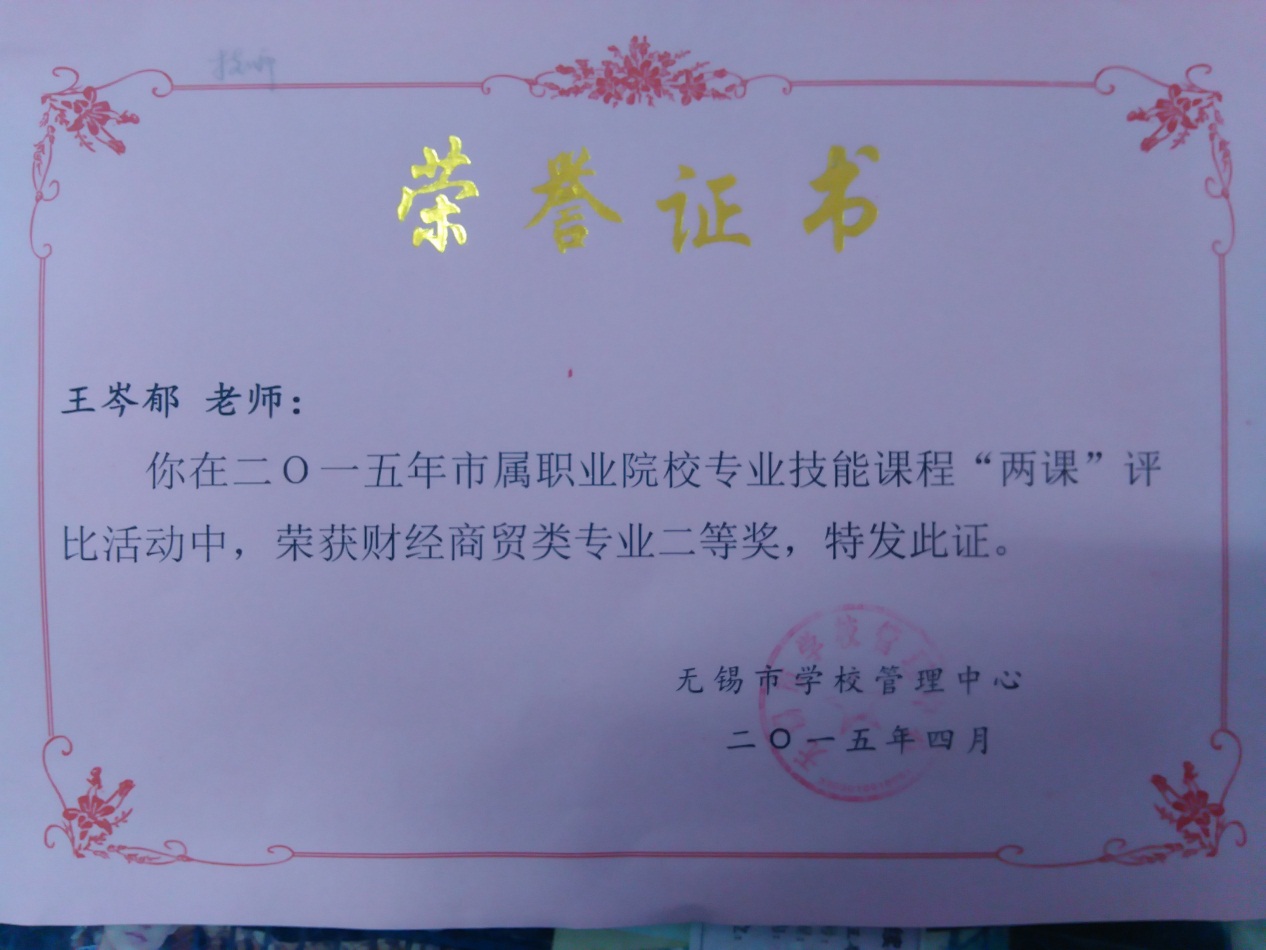 荣誉证书
王岑郁 老师：
你在二O一五年市属职业院校专业技能课程“两课”评
比活动中，荣获财经商贸类专业二等奖，特发此证。
无锡市学校管理中心
二O一五年四月